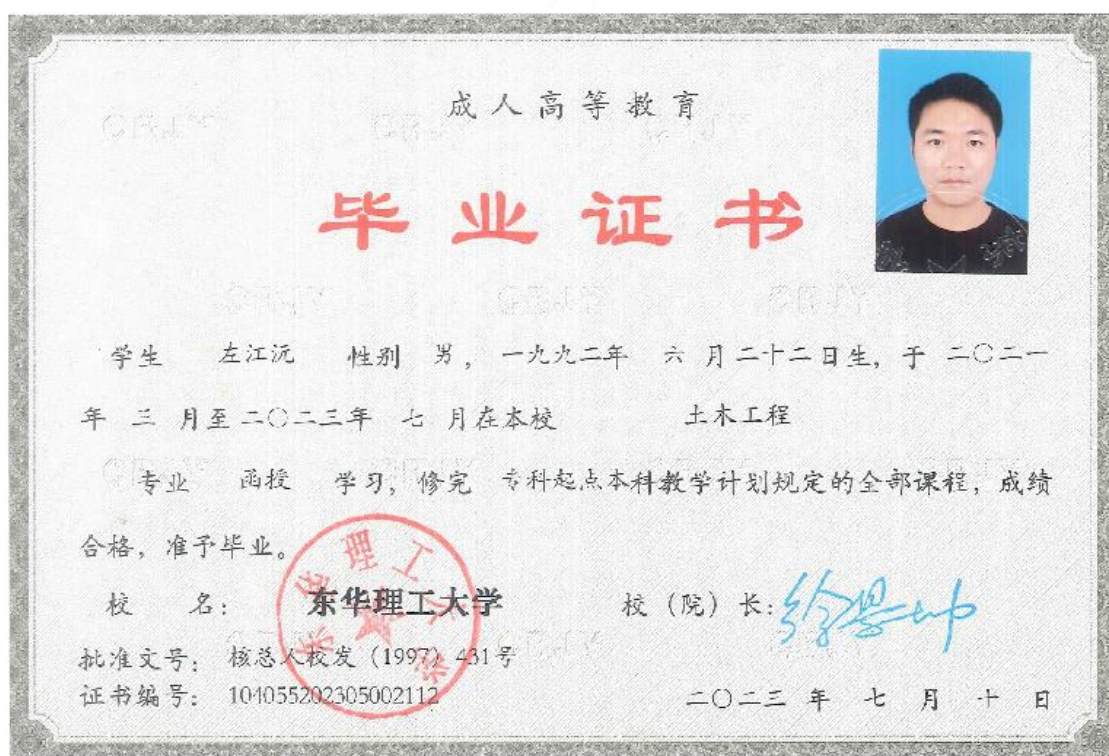 成人高等教育
毕业证书
学生 左江沅 性别 男，一九九二年 六 月二十二日生，于 二〇二一
年 三 月至二〇二三年 七 月在本校 土木工程
专业 函授 学习，修完 专科起点本科教学计划规定的全部课程，成绩
合格，准予毕业。
校 名： 东华理工大学 校（院）长：徐景坤
东华理工大学
批准文号：核总人校发（1997）431号
证书编号：104055202305002112
二〇二三 年 七 月 十 日